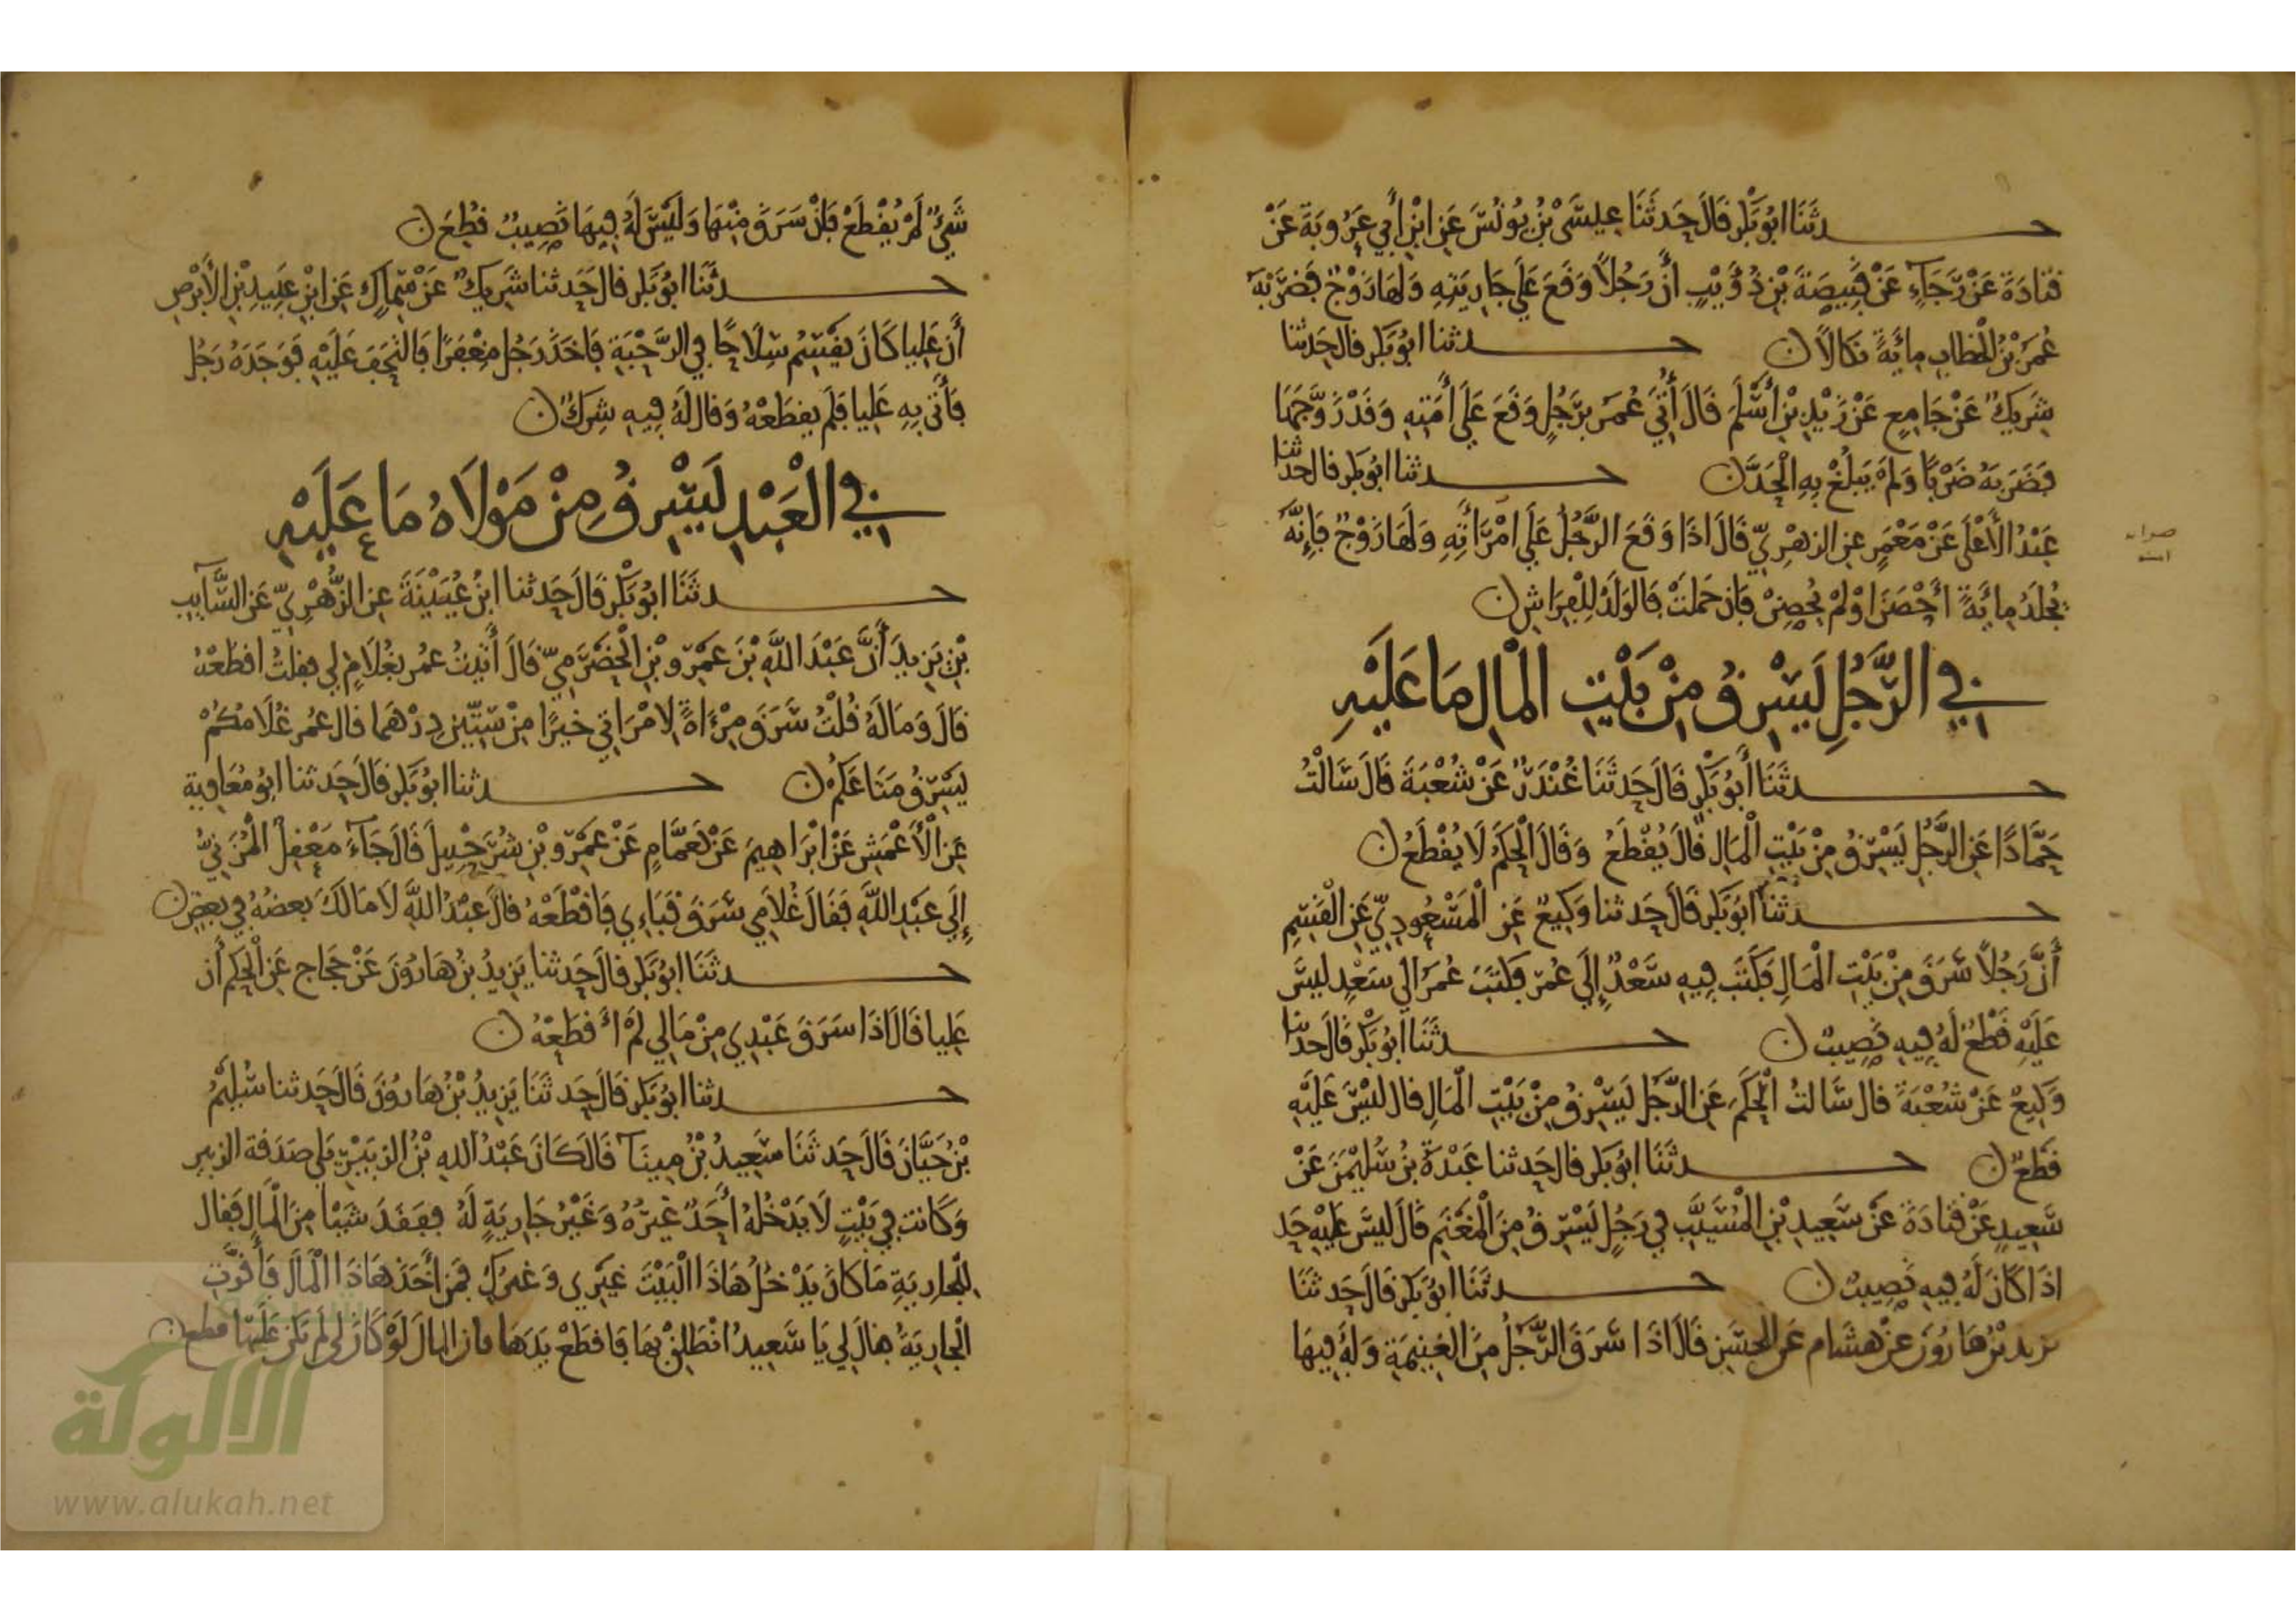 حدثنا ابو بكر قال حدثنا عيسى بن يونس عن ابن أبي عروبة عن
قتادة عن رجاء عن قبيصة بن ذؤيب أن رجلا وقع على جاريته ولها زوج فضربه
عمر بن الخطاب مائة نكالا ن حدثنا ابو بكر قال حدثنا
شريك عن جامع عن زيد بن أسلم قال أتي عمر برجل وقع على أمته وقد زوجها
فضربه ضربا ولم يبلغ به الحد ن حدثنا ابو بكر قال حدثنا
عبد الأعلى عن معمر عن الزهري قال اذا وقع الرجل على امرأته ولها زوج فإنه
يجلد مائة أحصن او لم يحصن فان حملت فالولد للفراش ن
صوابه
امته
في الرجل يسرق من بيت المال ما عليه
حدثنا أبو بكر قال حدثنا غندر عن شعبة قال سالت
حمادا عن الرجل يسرق من بيت المال قال يقطع وقال الحكم لا يقطع ن
حدثنا ابو بكر قال حدثنا وكيع عن المسعودي عن القسم
أن رجلا سرق من بيت المال فكتب فيه سعد إلى عمر فكتب عمر الى سعد ليس
عليه قطع له فيه نصيب ن حدثنا ابو بكر قال حدثنا
وكيع عن شعبة قال سالت الحكم عن الرجل يسرق من بيت المال قال ليس عليه
قطع ن حدثنا ابو بكر قال حدثنا عبدة بن سليمن عن
سعيد عن قتادة عن سعيد بن المسيب في رجل يسرق من المغنم قال ليس عليه حد
اذا كان له فيه نصيب ن حدثنا ابو بكر قال حدثنا
يزيد بن هارون عن هشام عن الحسن قال اذا سرق الرجل من الغنيمة وله فيها
شيء لم يقطع فان سرق منها وليس له فيها نصيب قطع ن
حدثنا ابو بكر قال حدثنا شريك عن سماك عن ابن عبيد بن الأبرص
أن عليا كان يقسم سلاحا في الرحبة فاخذ رجل مغفرا فالتحف عليه فوجده رجل
فأتى به عليا فلم يقطعه وقال له فيه شرك ن
في العبد يسرق من مولاه ما عليه
حدثنا ابو بكر قال حدثنا ابن عيينة عن الزهري عن السايب
بن يزيد أن عبد الله بن عمرو بن الحضرمي قال أتيت عمر بغلام لي فقلت اقطعه
قال وماله قلت سرق مرءاة لامراتي خيرا من ستين درهما قال عمر غلامكم
يسرق متاعكم ن حدثنا ابو بكر قال حدثنا ابو معاوية
عن الأعمش عن ابراهيم عن همام عن عمرو بن شرحبيل قال جاء معقل المزني
إلى عبد الله فقال غلامي سرق قباءي فاقطعه قال عبد الله لا مالك بعضه في بعض ن
حدثنا ابو بكر قال حدثنا يزيد بن هارون عن حجاج عن الحكم أن
عليا قال اذا سرق عبدي من مالي لم أقطعه ن
حدثنا ابو بكر قال حدثنا يزيد بن هارون قال حدثنا سليم
بن حيان قال حدثنا سعيد بن مينا قال كان عبد الله بن الزبير يلي صدقة الزبير
وكانت في بيت لا يدخله أحد غيره وغير جارية له ففقد شيئا من المال فقال
للجارية ما كان يدخل هاذا البيت غيري وغيرك فمن أخذ هاذا المال فأقرت
الجارية فقال لي يا سعيد انطلق بها فاقطع يدها فان المال لو كان لي لم يكن عليها قطع ن
الالوكة
www.alukah.net